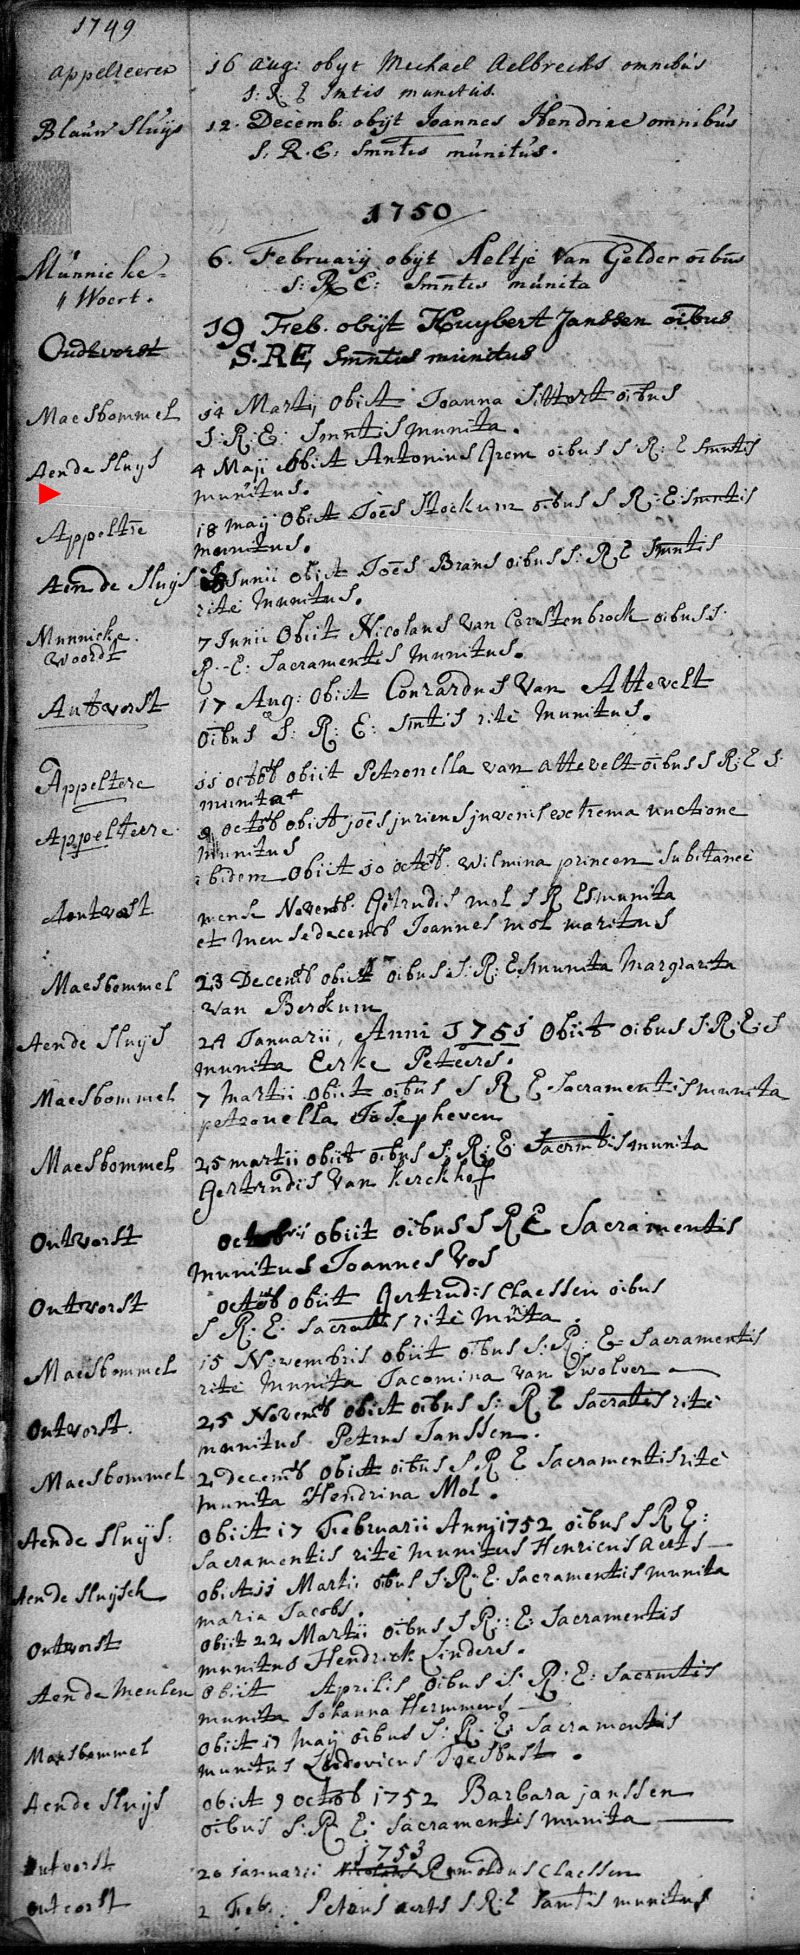 1749
Appelteeren 16 Aug: obyt Michael Aelbrechs omnibus
S: R: E Smtis munitus.
Blauw Sluijs 12. Decemb: obijt Joannes Hendrixe omnibus
S: R. E: Smntis munitus.
1750
Munnicke 6. Februarij obijt Aeltje Van Gelder oibus
Woert. S: R E: Smntis munita
Oudtvorst 19 Feb. obijt Huybert Janssen oibus
S. RE, Smntis munitus
Maesbommel 14 Martij obiit Joanna Sittert oibus
S: R: E: Smntis munita.
Aen de Sluys 4 Maji obiit Antonius oibus S: R: E Smntis
munitus.
Appeltre 18 may Obiit Joes Stockum oibus S R: E: Smntis
munitus.
Aen de Sluys Junii obiit Joes Brans oibus S: R E Smntis
rite munitus.
Munnicke 7 Junii Obiit Nicolaus van oibus S.
Woordt R. E: Sacramentis munitus.
Autvorst 17 Aug: obiit Conrardus Van Attevelt
Oibus S: R: E: Smtis rite munitus.
Appeltere 11 octob obiit Petronella van attevelt oibus S R: E S
munita
Appelteere. 9 octob obiit joes juriens juvenis extrema unctione
munitus
ibidem obiit 10 octob. Wilmina princen subitanee
Aontvorst mense Novemb. Getrudis mol S R E S munita
et mense decemb Joannes mol maritus
Maesbommel 23 Decemb obiit oibus S: R: E S munita Margrarita
van Berckum
Aen de Sluys 24 Januarii, Anni 1751 Obiit oibus S: R: E: S
munita Eerke Peteers.
Maesbommel 7 Martii obiit oibus S R E Sacramentis munita
petronella Josepheven
Maesbommel 25 martii obiit oibus S: R: E: Sacrmtis munita
Gertrudis Van Kerckhof
Ontvorst octobrii obiit oibus S R E Sacramentis
munitus Joannes Vos
Ontvorst octob obiit Gertrudis Claessen oibus
S R: E: Sacratis rite munita.
Maesbommel 15 Novembris obiit oibus S: R: E: Sacramentis
rite munita Jacomina van
Ontvorst. 25 Novemb obiit oibus S: R E Sacratis rite
munitus Petrus Janssen.
Maesbommel 2 decemb obiit oibus S. R E Sacramentis rite
munita Hendrina Mol.
Aen de Sluys: Obiit 17 Februarii Anni 1752 oibus S R E:
Sacramentis rite munitus Henricus aerts
Aen de Sluijsch obiit 11 Martii oibus S: R: E: Sacramentis munita
maria Jacobs.
Ontvorst obiit 22 Martii oibus S R: E: Sacramentis
munitus Hendrick Linders.
Aen de Meulen Obiit Aprilis oibus S: R: E: Sacrmtis
munita Johanna Hermmens
Maesbommel Obiit 17 May oibus S: R. E: Sacramentis
munitus Ludovicus
Aen de Sluijs obiit 9 octob 1752 Barbara janssen
oibus S: R E: Sacramentis munita
1753
Ontvorst 20 januarii Rumoldus Claessen
Ontvorst 2 Feb: Petrus aerts S: R: E Samtis munitus